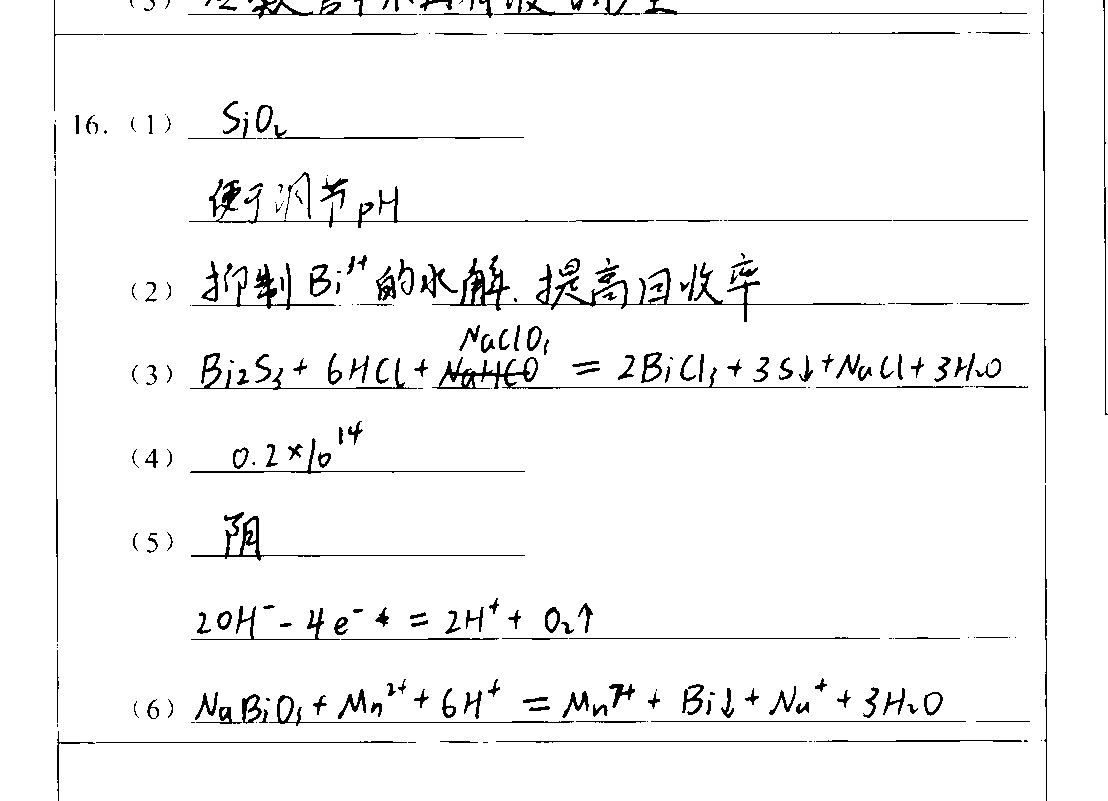 16. (1) SiO₂
便于调节pH
(2) 抑制Bi³⁺的水解.提高回收率
NaClO₃
(3) Bi₂S₃ + 6HCl + NaHCO = 2BiCl₃ + 3S↓ + NaCl + 3H₂O
(4) 0.2×10¹⁴
(5) 阴
2OH⁻ - 4e⁻ = 2H⁺ + O₂↑
(6) NaBiO₃ + Mn²⁺ + 6H⁺ = Mn⁷⁺ + Bi↓ + Na⁺ + 3H₂O